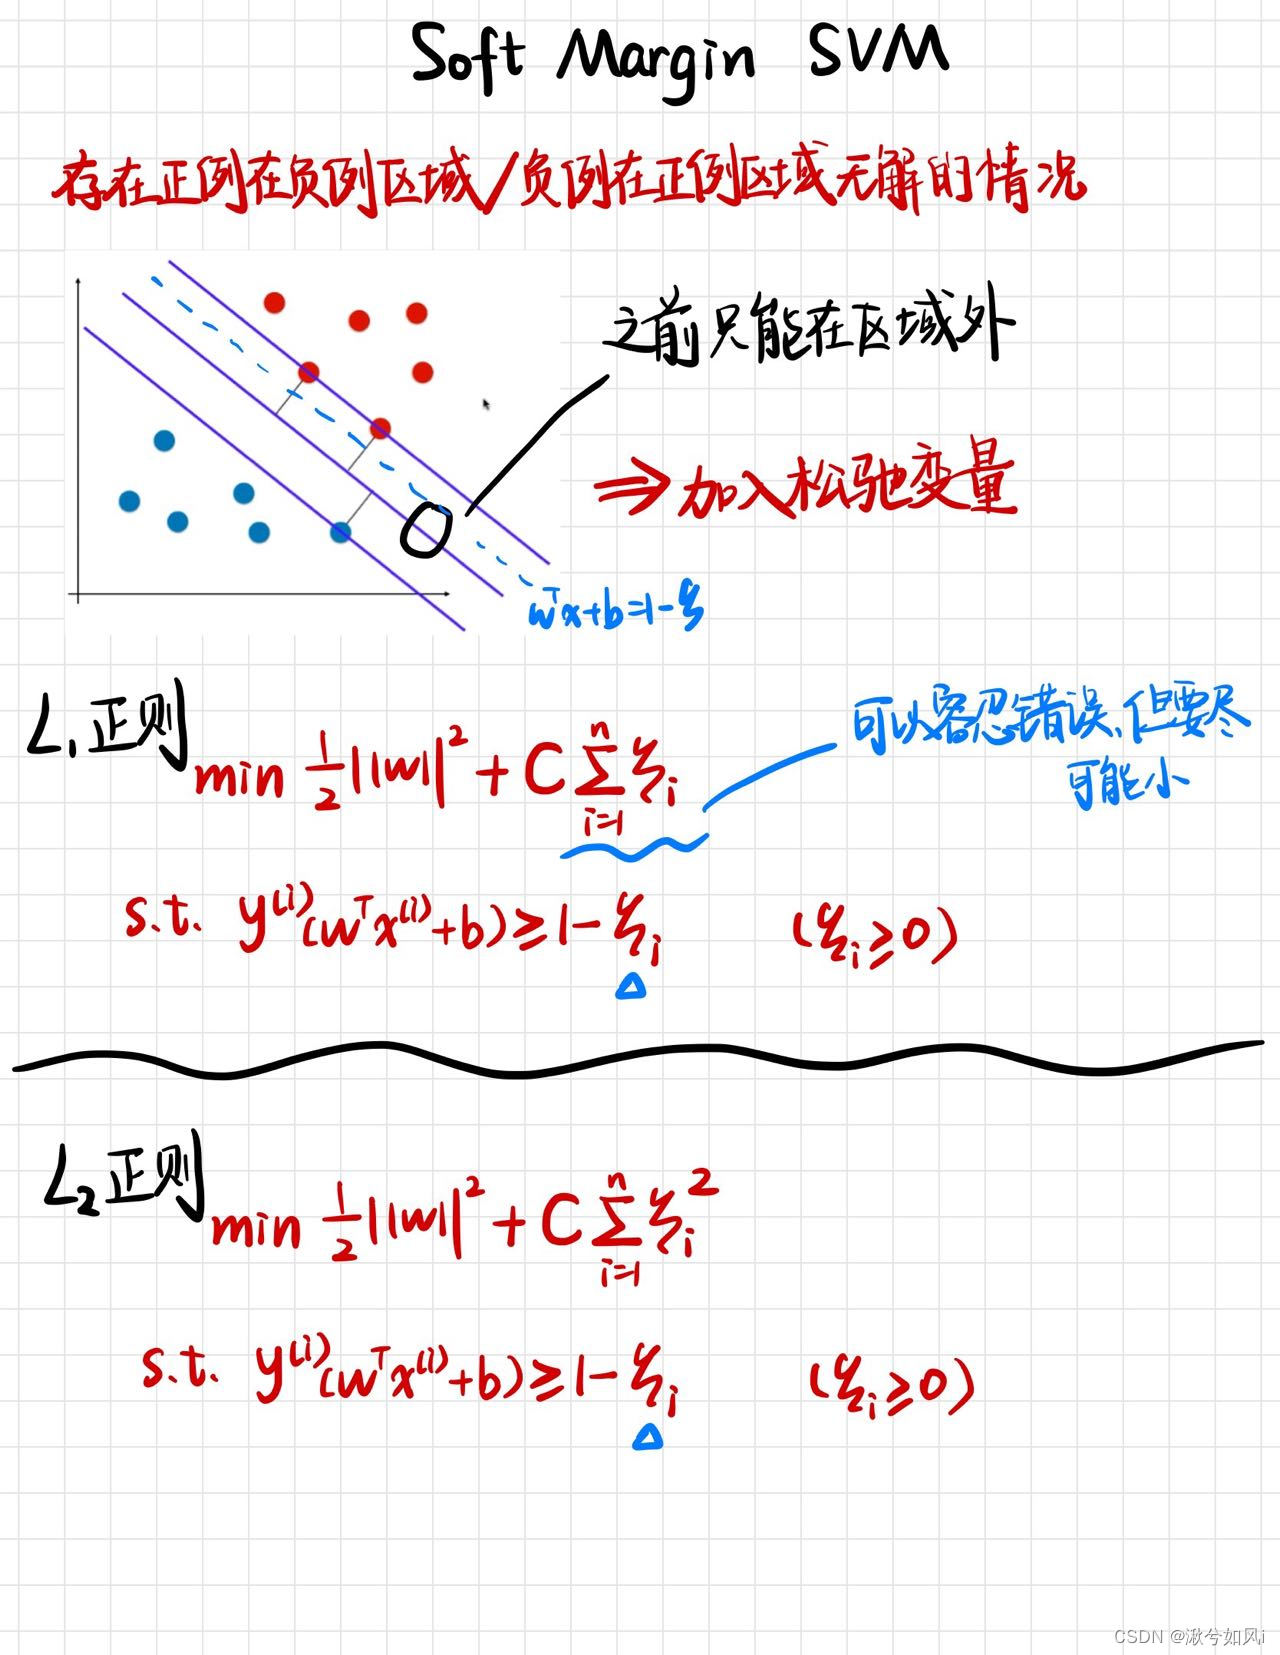 Soft Margin SVM
存在正例在负例区域/负例在正例区域无解的情况
之前只能在区域外
⇒加入松驰变量
wᵀx+b=1-ξ
L₁正则
min ½||w||² + C Σⁿᵢ₌₁ ξᵢ
可以容忍错误,但要尽
可能小
s.t. y⁽ⁱ⁾(wᵀx⁽ⁱ⁾+b)≥1-ξᵢ (ξᵢ≥0)
L₂正则
min ½||w||² + C Σⁿᵢ₌₁ ξᵢ²
s.t. y⁽ⁱ⁾(wᵀx⁽ⁱ⁾+b)≥1-ξᵢ (ξᵢ≥0)
CSDN @湫兮如风i